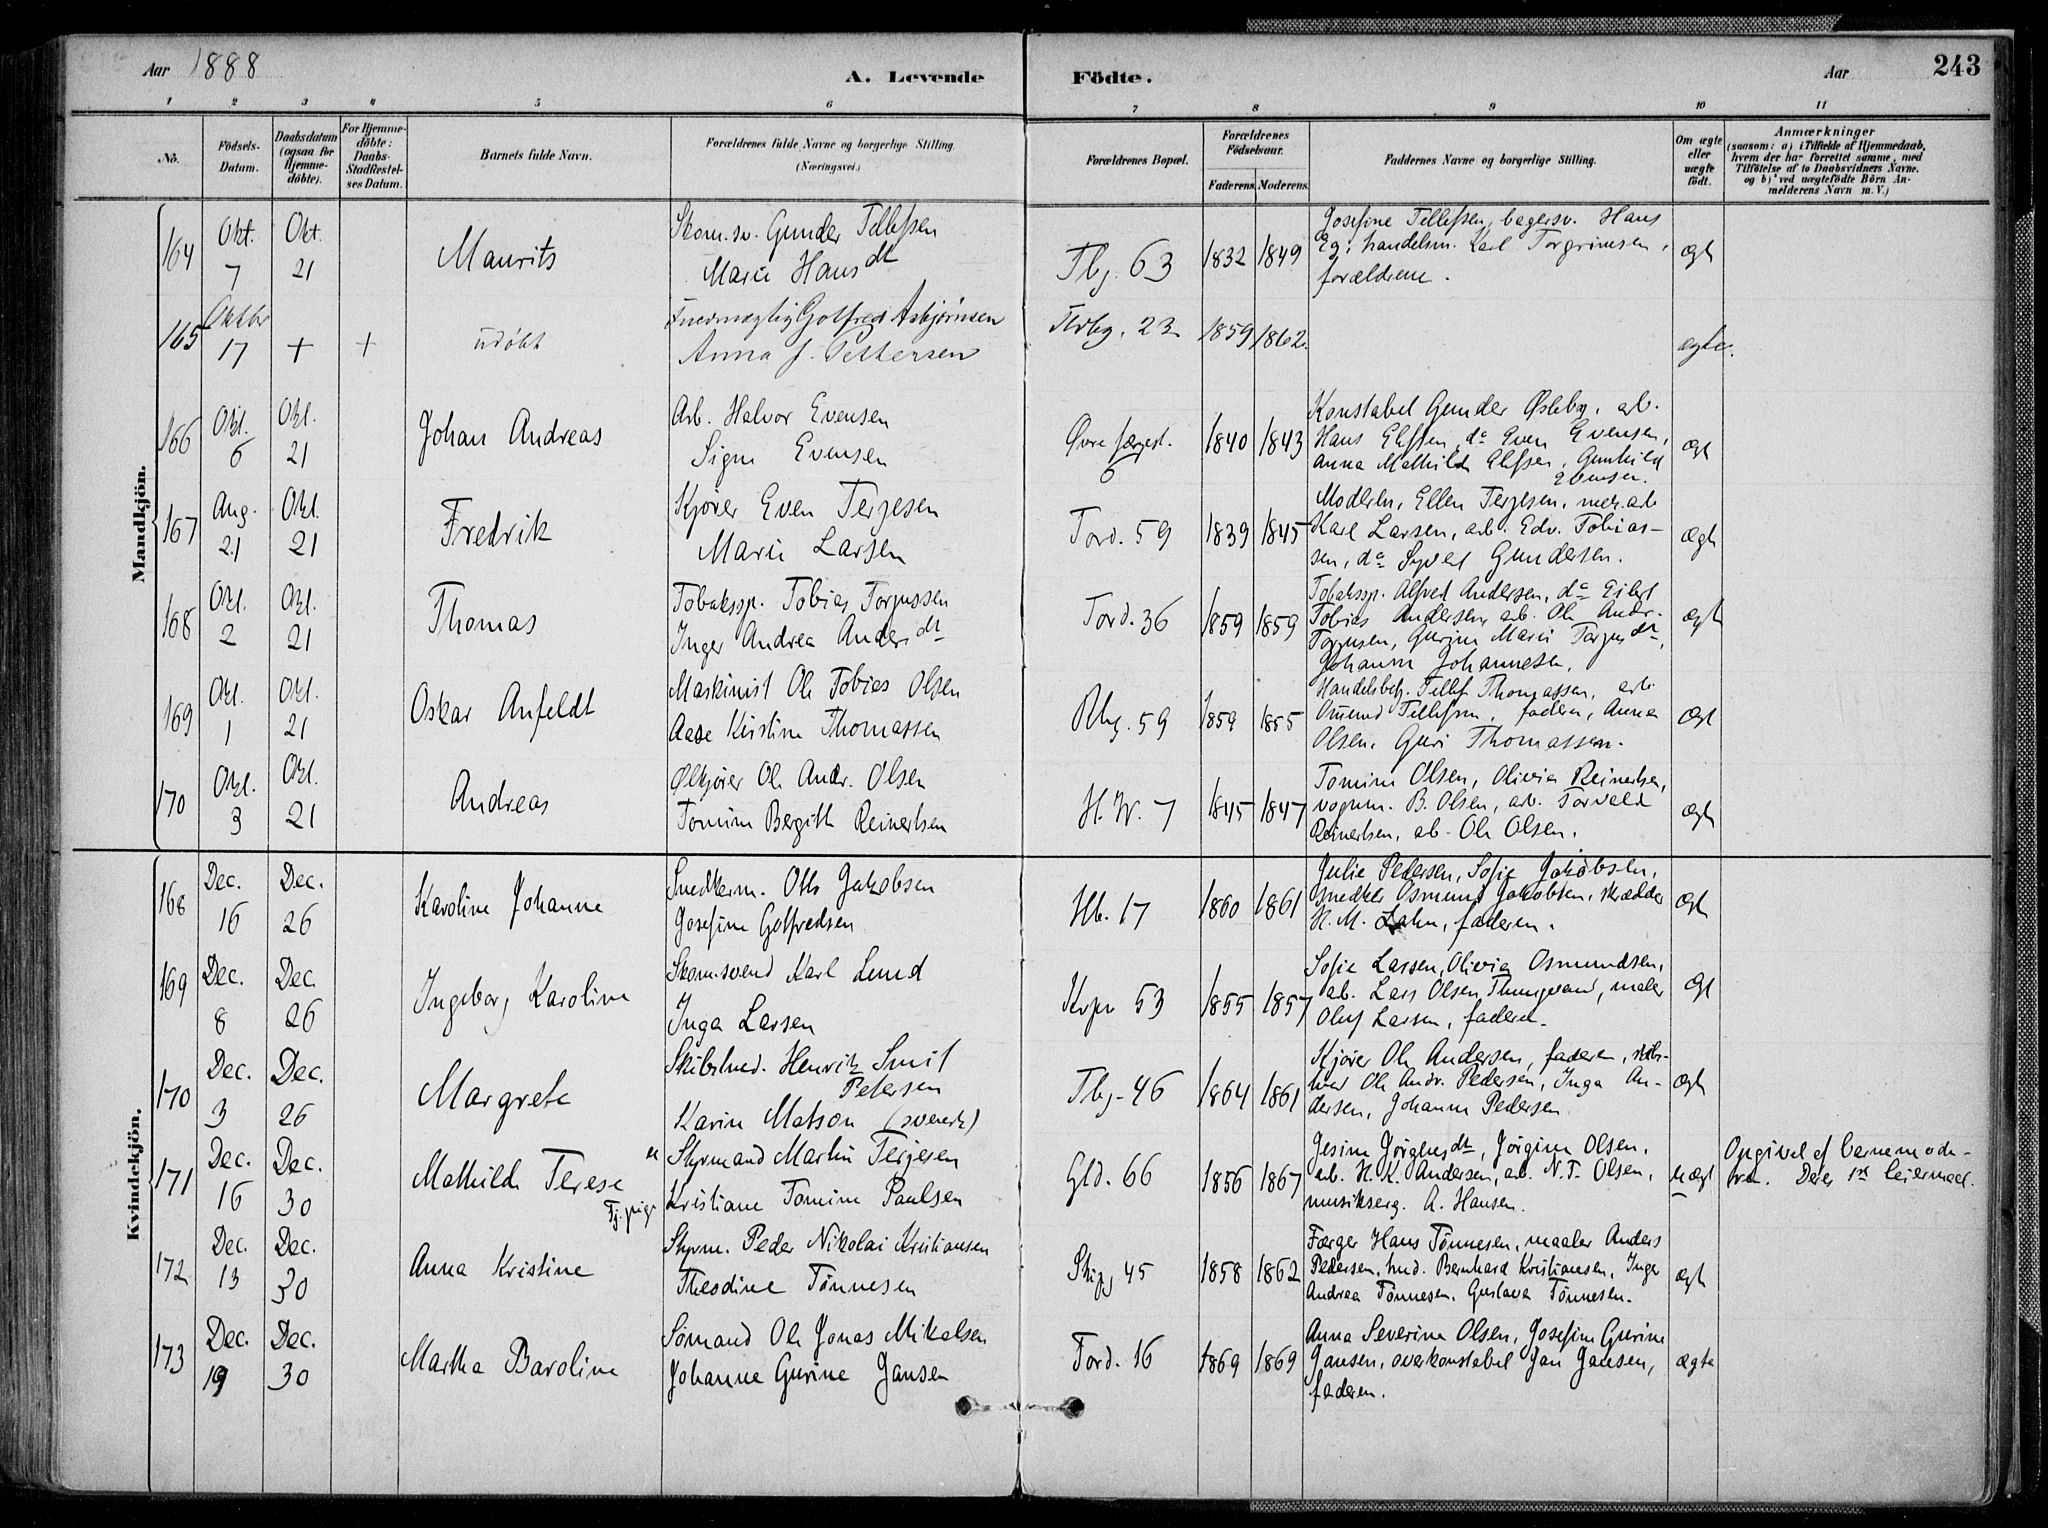 Aar 1888
A. Levende
Födte.
Aar
243
1 2 3 4 5 6 7 8 9 10 11
No.
Födsels-Datum.
Daabsdatum (ogsaa for Hjemme-döbte).
For Hjemme-döbte: Daabs-Stadfæstel-ses Datum.
Barnets fulde Navn.
Forældrenes fulde Navne og borgerlige Stilling. (Næringsvei.)
Forældrenes Bopæl.
Forældrenes Födselsaar.
Faderens. Moderens.
Faddernes Navne og borgerlige Stilling.
Om ægte eller uægte födt.
Anmærkninger
(saasom: a) i Tilfælde af Hjemmedaab,
hvem der har forrettet samme, med
Tilföielse af to Daabsvidners Navne.
og b) ved uægtefödte Börn An-
melderens Navn m. V.)
Mandkjön.
164 Okt. 7 Okt. 21 Maurits
Skom.sv. Gunder Tellefsen
Marie Hansdt
Tbg. 63 1832 1849
Josefine Tellefsen, bagersv. Hans
Eg, handelsm. Karl Torgrimsen,
forældrene.
ægt
165 Oktbr 17 + + udøbt
Gotfred Asbjørnsen
Anna J. Pettersen
23 1859 1862.
ægte.
166 Okt. 6 Okt. 21 Johan Andreas
Arb. Halvor Evensen
Signe Evensen
Øvre færgest. 6 1840 1843
Konstabel Gunder Østeby, arb.
Hans Elefsen, do Even Evensen,
Anna Mathilde Elefsen, Gunhild
Evensen.
ægt
167 Aug. 21 Okt. 21 Fredrik
Kjører Even Terjesen
Marie Larsen
Tord. 59 1839 1845
Moderen, Ellen Terjesen, mek.arb
Karl Larsen, arb. Edv. Tobias-
sen, do Syvert Gundersen.
ægt
168 Okt. 2 Okt. 21 Thomas
Tobakssp. Tobias Torjussen
Inger Andrea Andersdt
Tord. 36 1859 1859
Tobakssp. Alfred Andersen, do Eilert
Tobias Andersen, arb. Ole Andr.
Torjusen, Gurine Marie Torjusdt,
Johanne Johannesen.
ægt
169 Okt. 1 Okt. 21 Oskar Anfeldt
Maskinist Ole Tobias Olsen
Aase Kirstine Thomassen
Rbg. 59 1859 1855
Handelsbetj. Tellef Thomassen, arb
Omund Tellefsen, faderen, Anna
Olsen, Guri Thomassen.
ægt
170 Okt. 3 Okt. 21 Andreas
Ølkjører Ole Andr. Olsen
Tomine Bergitte Reinertsen
H.W. 7 1845 1847
Tomine Olsen, Olivia Reinertsen,
vognm. B. Olsen, arb. Torvald
Reinertsen, ab. Ole Olsen.
ægt
Kvindekjön.
168 Dec. 16 Dec. 26 Karoline Johanne
Snedkerm. Otto Jakobsen
Josefine Gotfredsen
Hb. 17 1860 1861
Julie Pedersen, Sofie Jakobsen,
snedker Osmund Jakobsen, skrædder
H. M. Lahn, faderen.
ægt
169 Dec. 8 Dec. 26 Ingeborg Karoline
Skom.svend Karl Lund
Inga Larsen
53 1855 1857
Sofie Larsen, Olivia Osmundsen,
ab. Lars Olsen, maler
Oluf Larsen, faderen.
ægt
170 Dec. 3 Dec. 26 Margrete
Skibstmd. Henrik Smit
Petersen
Karin Matson (svensk)
Tbg. 46 1864 1861
Kjører Ole Andersen, faderen, skibs-
tmd Ole Andr. Pedersen, Inga An-
dersen, Johanne Pedersen.
ægt
171 Dec. 16 Dec. 30 Mathilde Terese
Styrmand Martin Terjesen
Tj.pige Kristiane Tomine Paulsen
Gld. 66 1856 1867
Gesine Jørginsdt, Jörgine Olsen,
arb. H. K. Andersen, arb. N. T. Olsen,
musikserg. A. Hansen.
uægt
Opgivet af barnemode-
ren. Deres 1st leiermaal.
172 Dec. 13 Dec. 30 Anna Kristine
Styrm. Peder Nikolai Kristiansen
Theodine Tönnesen
Skipg 45 1858 1862
Færger Hans Tönnesen, maaler Anders
Pedersen, tmd. Bernhard Kristiansen, Inger
Andrea Tönnesen, Gustava Tönnesen.
ægt
173 Dec. 19 Dec. 30 Martha Baroline
Sömand Ole Jonas Mikalsen
Johanne Gurine Jansen
Tord. 16 1869 1869
Anna Severine Olsen, Josefine Gurine
Jansen, overkonstabel Jan Jansen,
faderen.
ægte